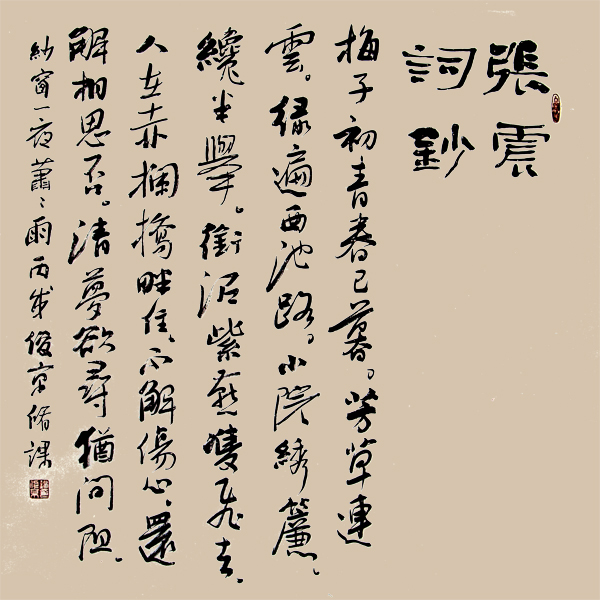 張震
詞鈔
梅子初青春已暮。芳草連
雲。綠遍西池路。小院綉簾、
纔半舉。銜泥紫燕雙飛去、
人在赤欄橋畔住、不解傷心、還
解相思否。清夢欲尋猶間阻、
紗窗一夜蕭〻雨 丙戌 俊京偹課